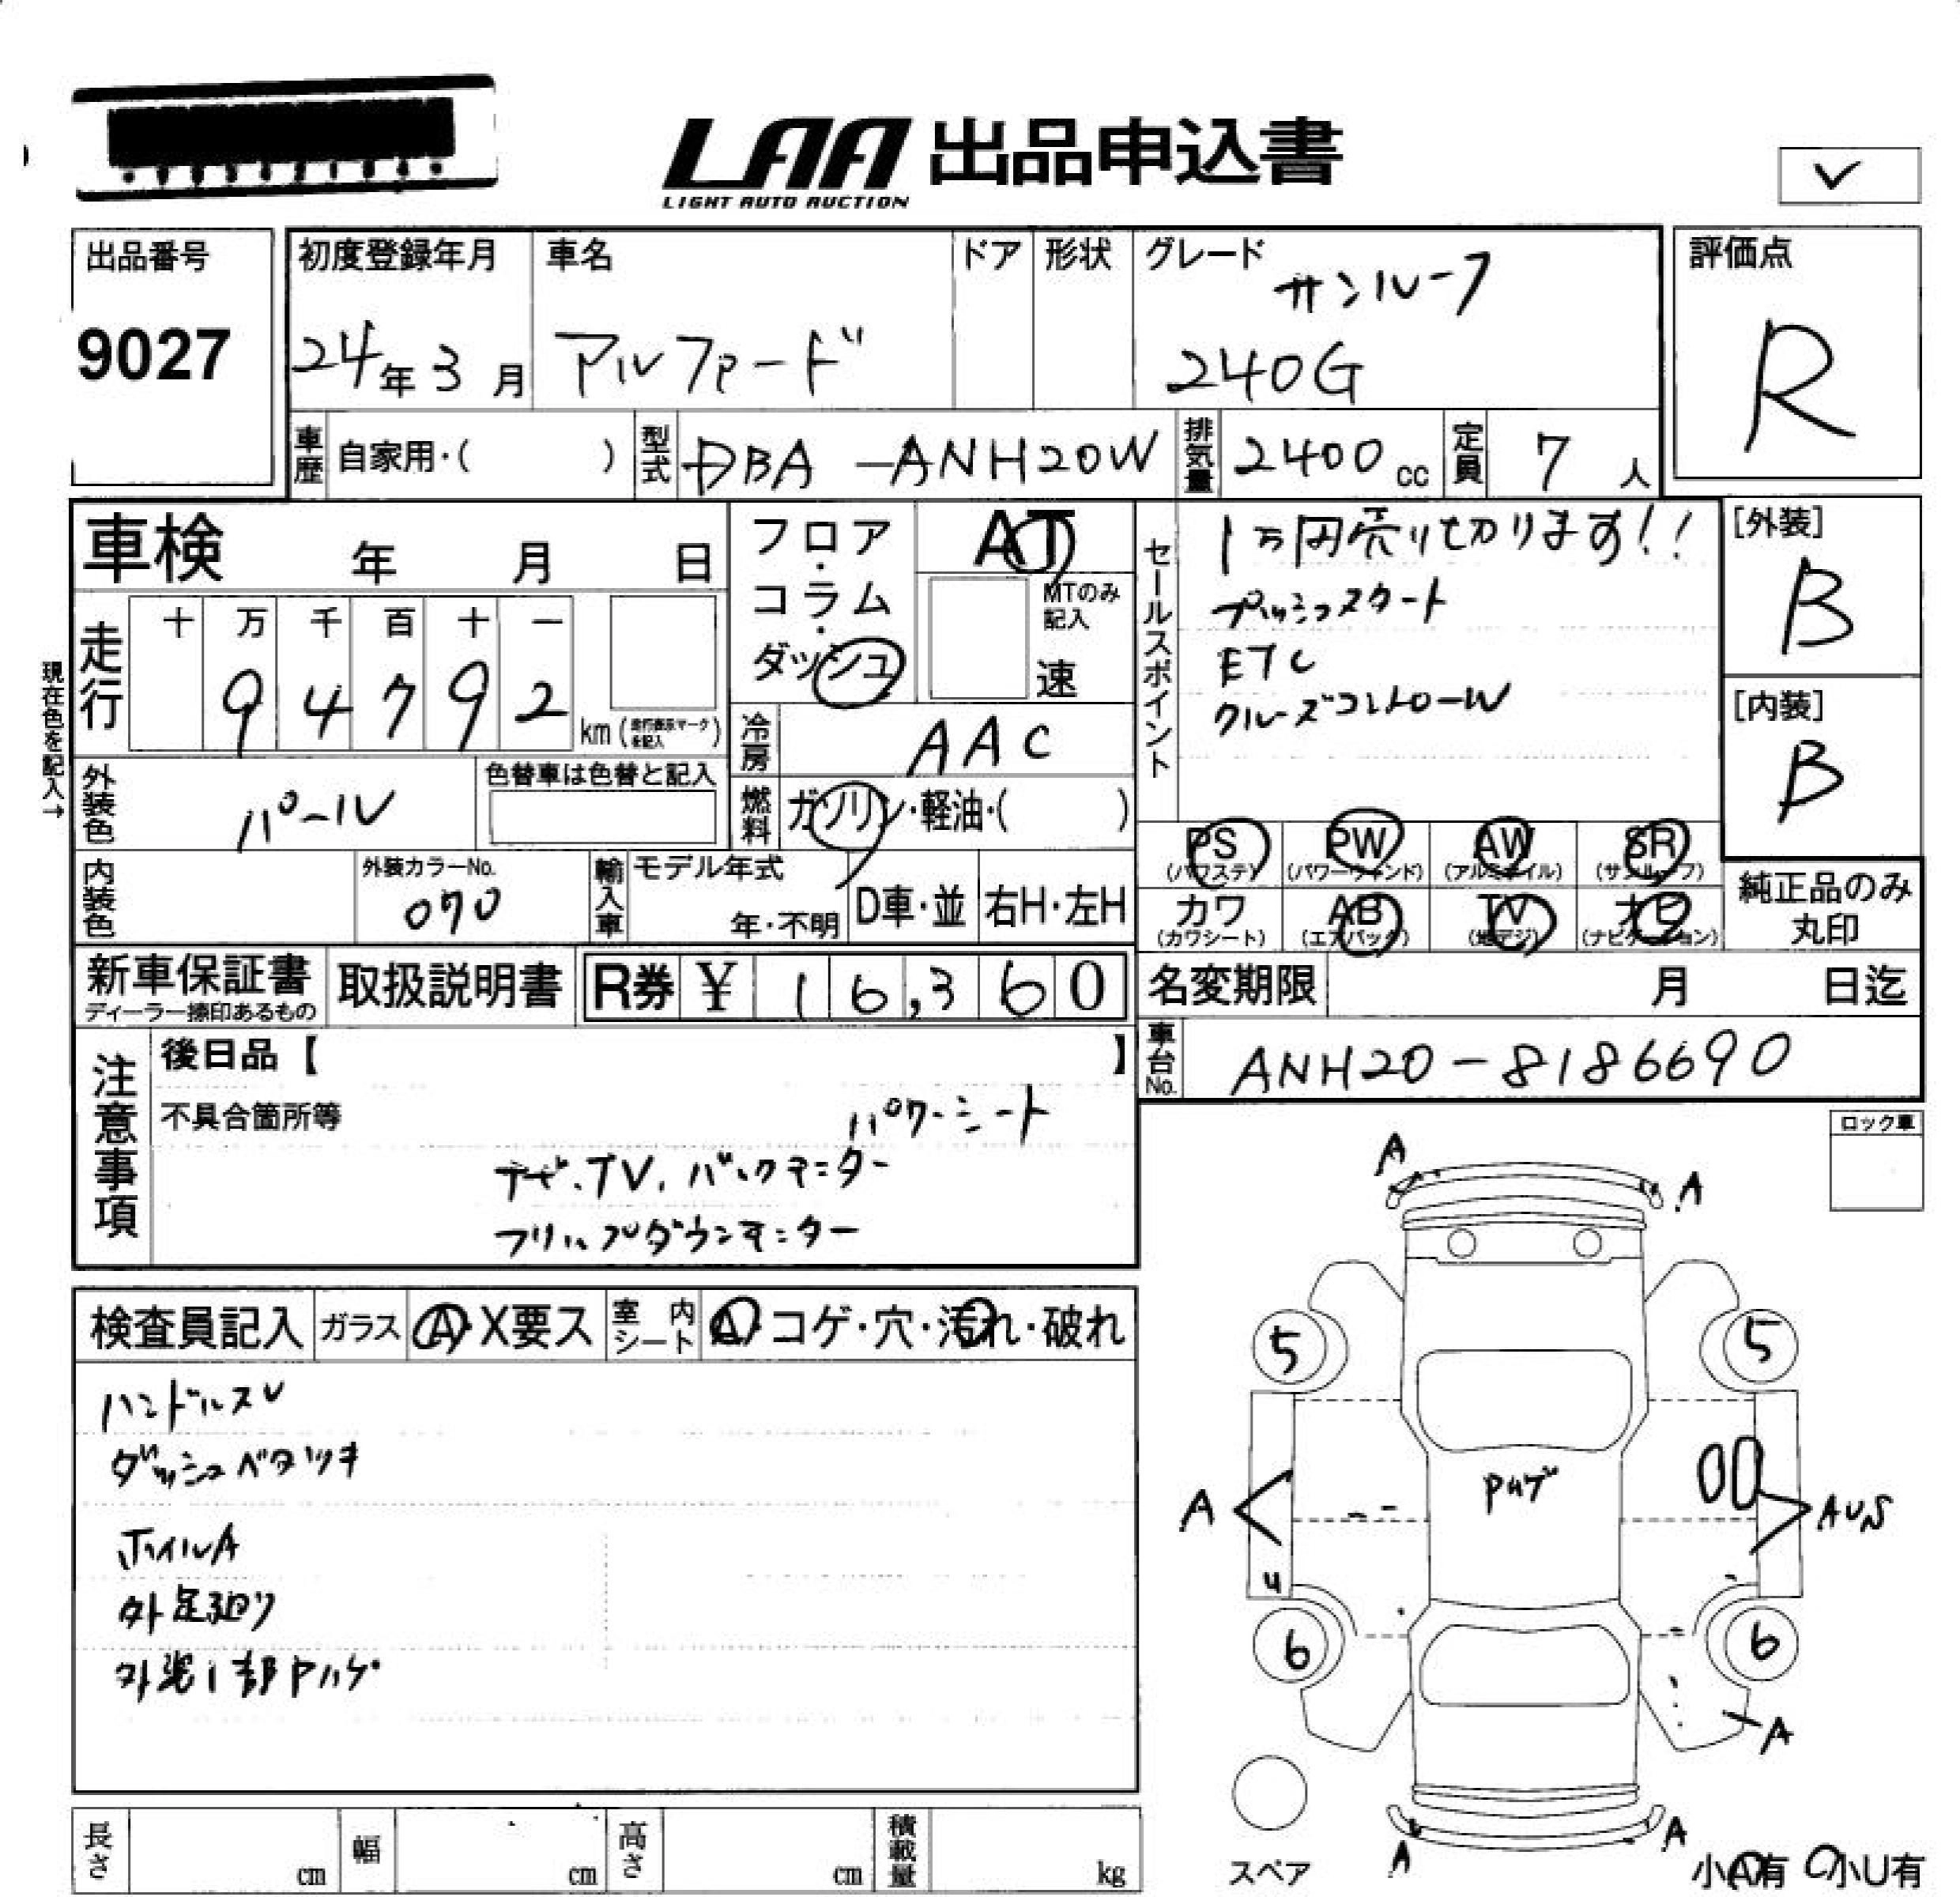 LAA 出品申込書
LIGHT AUTO AUCTION
出品番号
9027
初度登録年月
24年3月
車名
アルファード
ドア
形状
グレード
サンルーフ
240G
評価点
R
車歴
自家用・( )
型式
DBA-ANH20W
排気量
2400cc
定員
7人
車検 年 月 日
現在色を記入→
走行
十 万 千 百 十 一
9 4 7 9 2
km(走行表示マークを記入)
フロア・コラム・ダッシュ
AT
MTのみ記入
速
冷房
AAC
外装色
パール
色替車は色替と記入
燃料
ガソリン・軽油・( )
内装色
外装カラーNo.
070
輸入車
モデル年式
年・不明
D車・並
右H・左H
セールスポイント
1万円売り切ります!!
プッシュスタート
ETC
クルーズコントロール
[外装]
B
[内装]
B
PS (パワステ)
PW (パワーウィンド)
AW (アルミホイル)
SR (サンルーフ)
カワ (カワシート)
AB (エアバック)
TV (地デジ)
ナビ (ナビゲーション)
純正品のみ丸印
新車保証書
ディーラー捺印あるもの
取扱説明書
R券 ¥ 16,360
名変期限 月 日迄
車台No.
ANH20-8186690
注意事項
後日品【 】
不具合箇所等
パワーシート
ナビ、TV、バックモニター
フリップダウンモニター
ロック車
検査員記入
ガラス
A・X要ス
室内シート
A・コゲ・穴・汚れ・破れ
ハンドルスレ
ダッシュベタツキ
ホイルA
外足廻り
外装1部Pハゲ
A
A
5
5
Pハゲ
A
U
6
6
A
A
A
スペア
小A有 小U有
長さ cm
幅 cm
高さ cm
積載量 kg